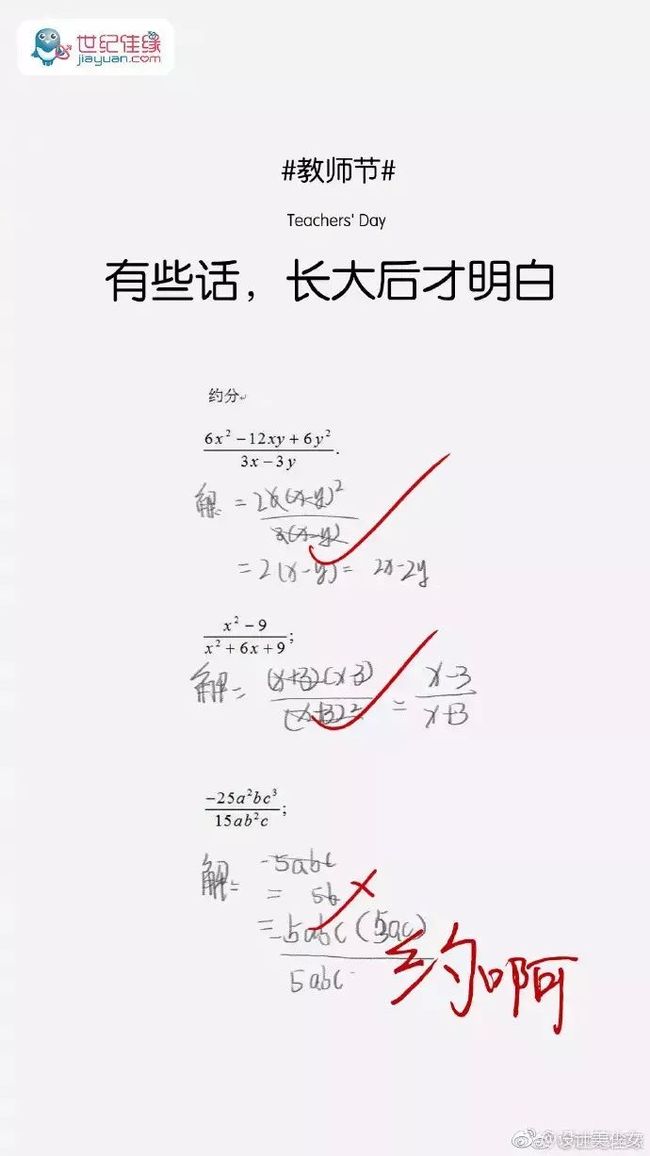 世纪佳缘
jiayuan.com
#教师节#
Teachers' Day
有些话，长大后才明白
约分
6x² −12xy + 6y²
3x − 3y
.
解 =
(x−y)²
= 2(x−y) = 2x−2y
x² − 9
x² + 6x + 9
;
解 = (x+3)(x−3)
(x+3)²
= x−3
x+3
−25a²bc³
15ab²c
;
解 = -5abc
= 5b
= -5abc (5ac)
5abc
约啊